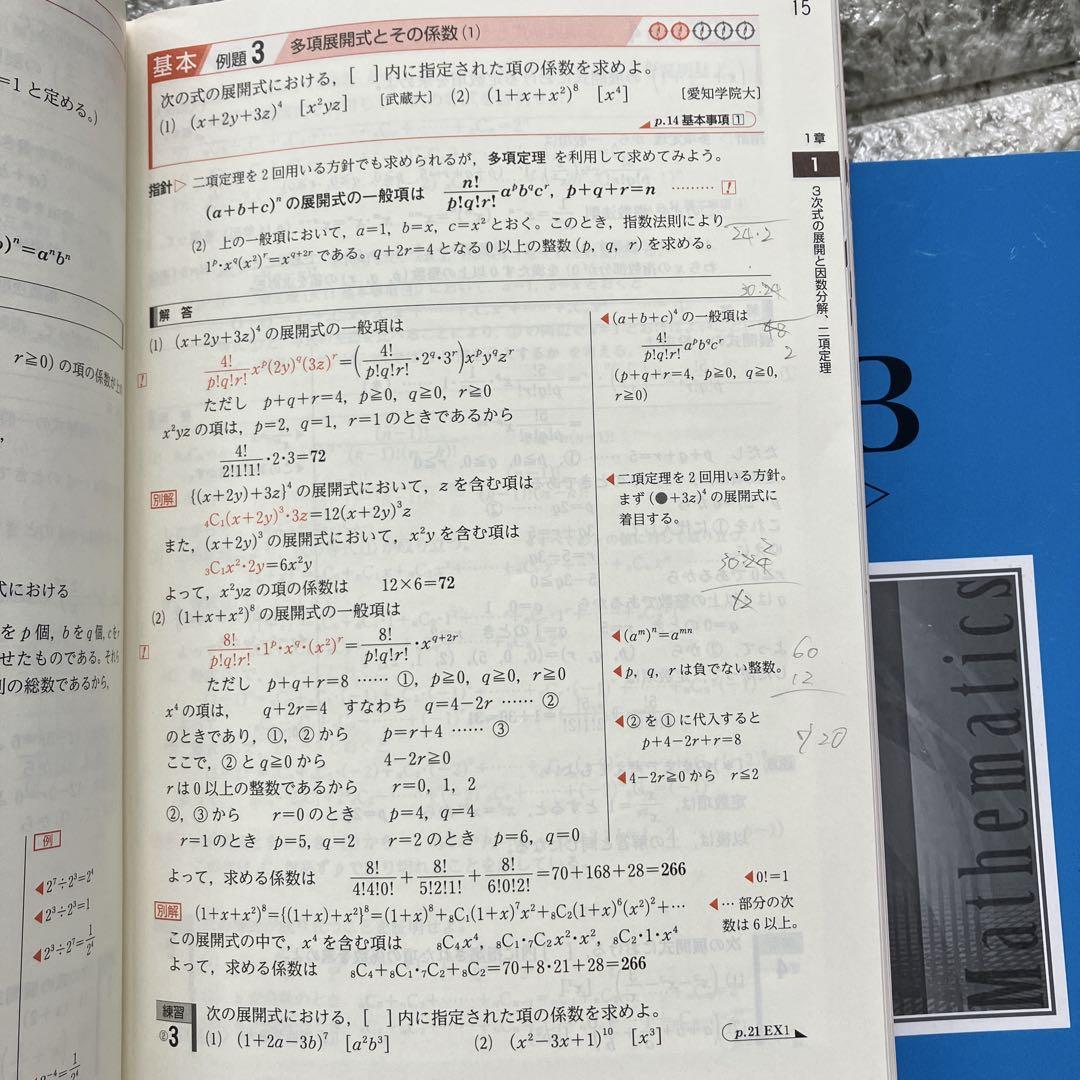 15
基本 例題 3 多項展開式とその係数(1)
次の式の展開式における，[ ]内に指定された項の係数を求めよ。
(1) (x+2y+3z)⁴ [x²yz] 〔武蔵大〕 (2) (1+x+x²)⁸ [x⁴] 〔愛知学院大〕
p.14 基本事項 1
指針▷ 二項定理を2回用いる方針でも求められるが，多項定理 を利用して求めてみよう。
(a+b+c)ⁿ の展開式の一般項は n!/(p!q!r!) aᵖb^qcʳ, p+q+r=n ……… !
(2) 上の一般項において，a=1, b=x, c=x² とおく。このとき，指数法則により
1ᵖ・x^q(x²)ʳ=x^(q+2r) である。q+2r=4 となる0以上の整数(p, q, r)を求める。
24・2
解答
(1) (x+2y+3z)⁴ の展開式の一般項は
! 4!/(p!q!r!) xᵖ(2y)^q(3z)ʳ=(4!/(p!q!r!)・2^q・3ʳ)xᵖy^qzʳ
ただし p+q+r=4, p≧0, q≧0, r≧0
x²yz の項は，p=2, q=1, r=1 のときであるから
4!/(2!1!1!)・2・3=72
別解 {(x+2y)+3z}⁴ の展開式において，z を含む項は
₄C₁(x+2y)³・3z=12(x+2y)³z
また，(x+2y)³ の展開式において，x²y を含む項は
₃C₁x²・2y=6x²y
よって，x²yz の項の係数は 12×6=72
(2) (1+x+x²)⁸ の展開式の一般項は
! 8!/(p!q!r!)・1ᵖ・x^q・(x²)ʳ=8!/(p!q!r!)・x^(q+2r)
ただし p+q+r=8 …… ①, p≧0, q≧0, r≧0
x⁴ の項は， q+2r=4 すなわち q=4−2r …… ②
のときであり，①，②から p=r+4 …… ③
ここで，②と q≧0 から 4−2r≧0
r は0以上の整数であるから r=0, 1, 2
②，③から r=0 のとき p=4, q=4
r=1 のとき p=5, q=2 r=2 のとき p=6, q=0
よって，求める係数は 8!/(4!4!0!)+8!/(5!2!1!)+8!/(6!0!2!)=70+168+28=266
別解 (1+x+x²)⁸={(1+x)+x²}⁸=(1+x)⁸+₈C₁(1+x)⁷x²+₈C₂(1+x)⁶(x²)²+…
この展開式の中で，x⁴ を含む項は ₈C₄x⁴, ₈C₁・₇C₂x²・x², ₈C₂・1・x⁴
よって，求める係数は ₈C₄+₈C₁・₇C₂+₈C₂=70+8・21+28=266
◀(a+b+c)⁴ の一般項は
4!/(p!q!r!) aᵖb^qcʳ
(p+q+r=4, p≧0, q≧0,
r≧0)
◀二項定理を2回用いる方針。
まず (●+3z)⁴ の展開式に
着目する。
◀(aᵐ)ⁿ=aᵐⁿ
◀p, q, r は負でない整数。
◀②を①に代入すると
p+4−2r+r=8
◀4−2r≧0 から r≦2
◀0!=1
◀… 部分の次
数は6以上。
30・24
2
30・24
60
12
練習
②3 次の展開式における，[ ]内に指定された項の係数を求めよ。
(1) (1+2a−3b)⁷ [a²b³] (2) (x²−3x+1)¹⁰ [x³]
p.21 EX1
1章
1
3次式の展開と因数分解、二項定理
=1 と定める。)
)ⁿ=aⁿbⁿ
r≧0) の項の係数が
式における
を p 個，b を q 個，c を r
せたものである。それら
別の総数であるから，
例
◀2⁷÷2³=2⁴
◀2³÷2³=1
◀2³÷2⁷=1/2⁴
⁻⁴=1/2⁴
B
Mathematics